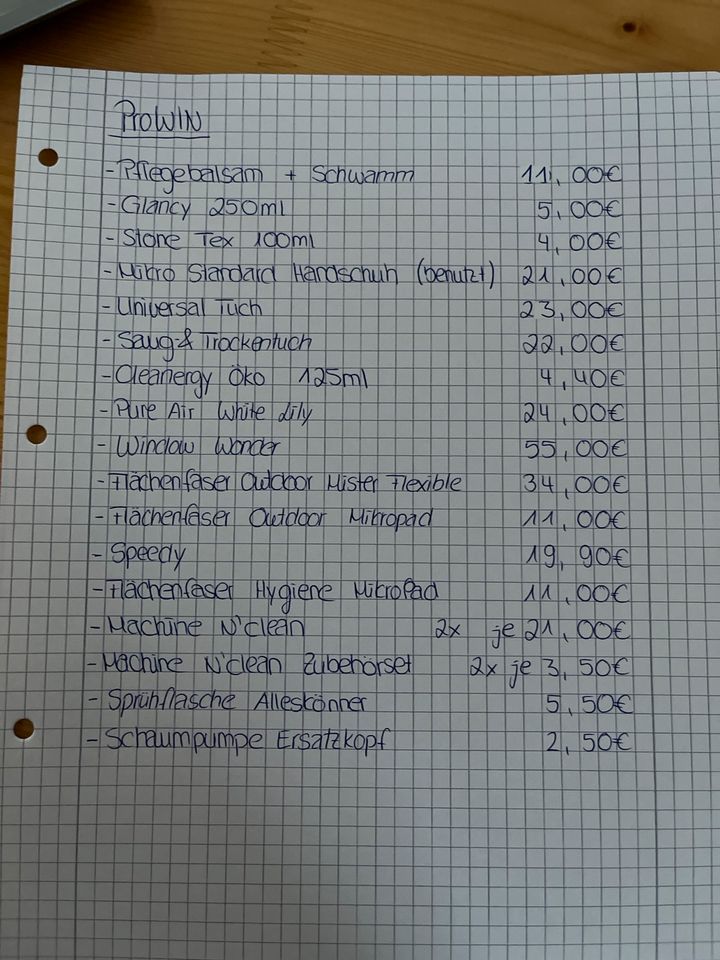 ProWIN
- Pflegebalsam + Schwamm 11,00€
- Glancy 250ml 5,00€
- Stone Tex 100ml 4,00€
- Mikro Standard Handschuh (benutzt) 21,00€
- Universal Tuch 23,00€
- Saug & Trockentuch 22,00€
- Cleanergy Öko 125ml 4,40€
- Pure Air White Lily 24,00€
- Window Wonder 55,00€
- Flächenfaser Outdoor Mister Flexible 34,00€
- Flächenfaser Outdoor Mikropad 11,00€
- Speedy 19,90€
- Flächenfaser Hygiene MikroPad 11,00€
- Machine N'clean 2x je 21,00€
- Machine N'clean Zubehörset 2x je 3,50€
- Sprühflasche Alleskönner 5,50€
- Schaumpumpe Ersatzkopf 2,50€